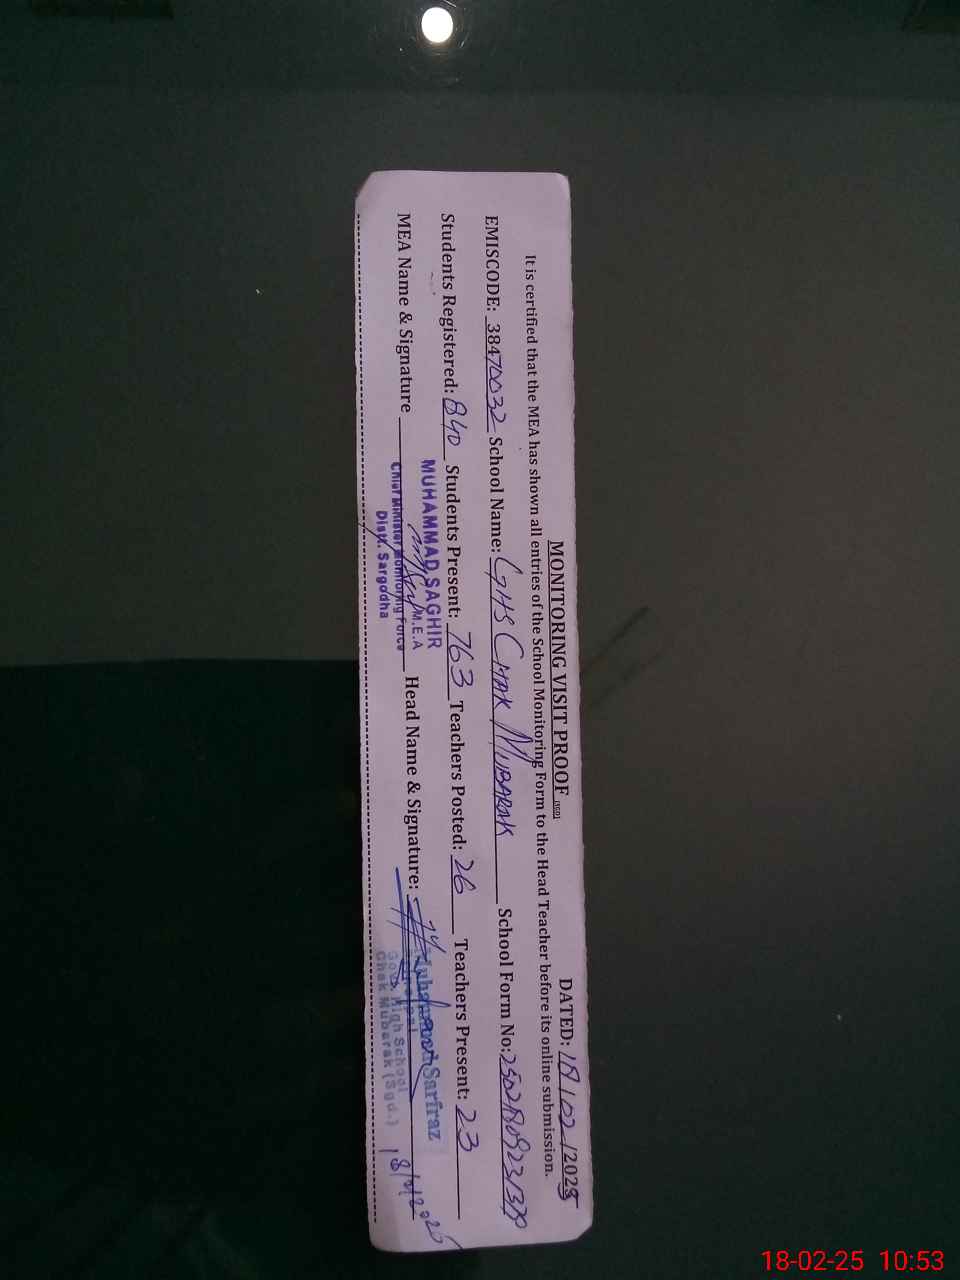 MONITORING VISIT PROOF (SGD)
DATED: 18/02/2025
It is certified that the MEA has shown all entries of the School Monitoring Form to the Head Teacher before its online submission.
EMISCODE: 38470032 School Name: GHS CHAK MUBARAK School Form No:
Students Registered: 840 Students Present: 763 Teachers Posted: 26 Teachers Present: 23
MEA Name & Signature Head Name & Signature:
MUHAMMAD SAGHIR
M.E.A
Chief Minister Monitoring Force
Distt. Sargodha
Muhammad Sarfraz
Principal
Govt. High School
Chak Mubarak (Sgd.)
18/2/2025
18-02-25 10:53